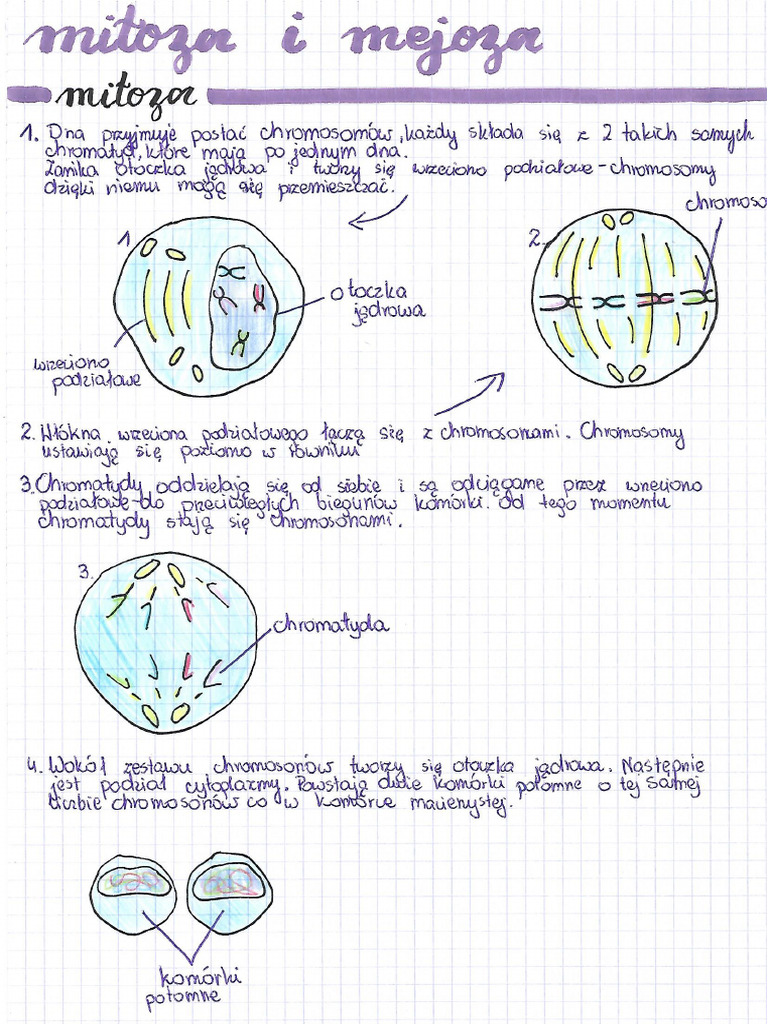 mitoza i mejoza
mitoza
1. Dna przyjmuje postać chromosomów, każdy składa się z 2 takich samych
chromatyd, które mają po jednym dna.
Zanika otoczka jądrowa i tworzy się wrzeciono podziałowe - chromosomy
dzięki niemu mogą się przemieszczać.
1
otoczka
jądrowa
wrzeciono
podziałowe
2.
chromoso
2. Włókna wrzeciona podziałowego łączą się z chromosomami. Chromosomy
ustawiają się poziomo w równiku
3. Chromatydy oddzielają się od siebie i są odciągane przez wrzeciono
podziałowe do przeciwległych biegunów komórki. Od tego momentu
chromatydy stają się chromosonami.
3.
chromatyda
4. Wokół zestawu chromosonów tworzy się otoczka jądrowa. Następnie
jest podział cytoplazmy. Powstają dwie komórki potomne o tej samej
liczbie chromosonów co w komórce macierzystej.
komórki
potomne